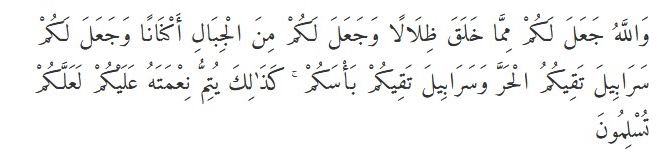 وَاللَّهُ جَعَلَ لَكُمْ مِمَّا خَلَقَ ظِلَالًا وَجَعَلَ لَكُمْ مِنَ الْجِبَالِ أَكْنَانًا وَجَعَلَ لَكُمْ
سَرَابِيلَ تَقِيكُمُ الْحَرَّ وَسَرَابِيلَ تَقِيكُمْ بَأْسَكُمْ ۚ كَذَٰلِكَ يُتِمُّ نِعْمَتَهُ عَلَيْكُمْ لَعَلَّكُمْ
تُسْلِمُونَ